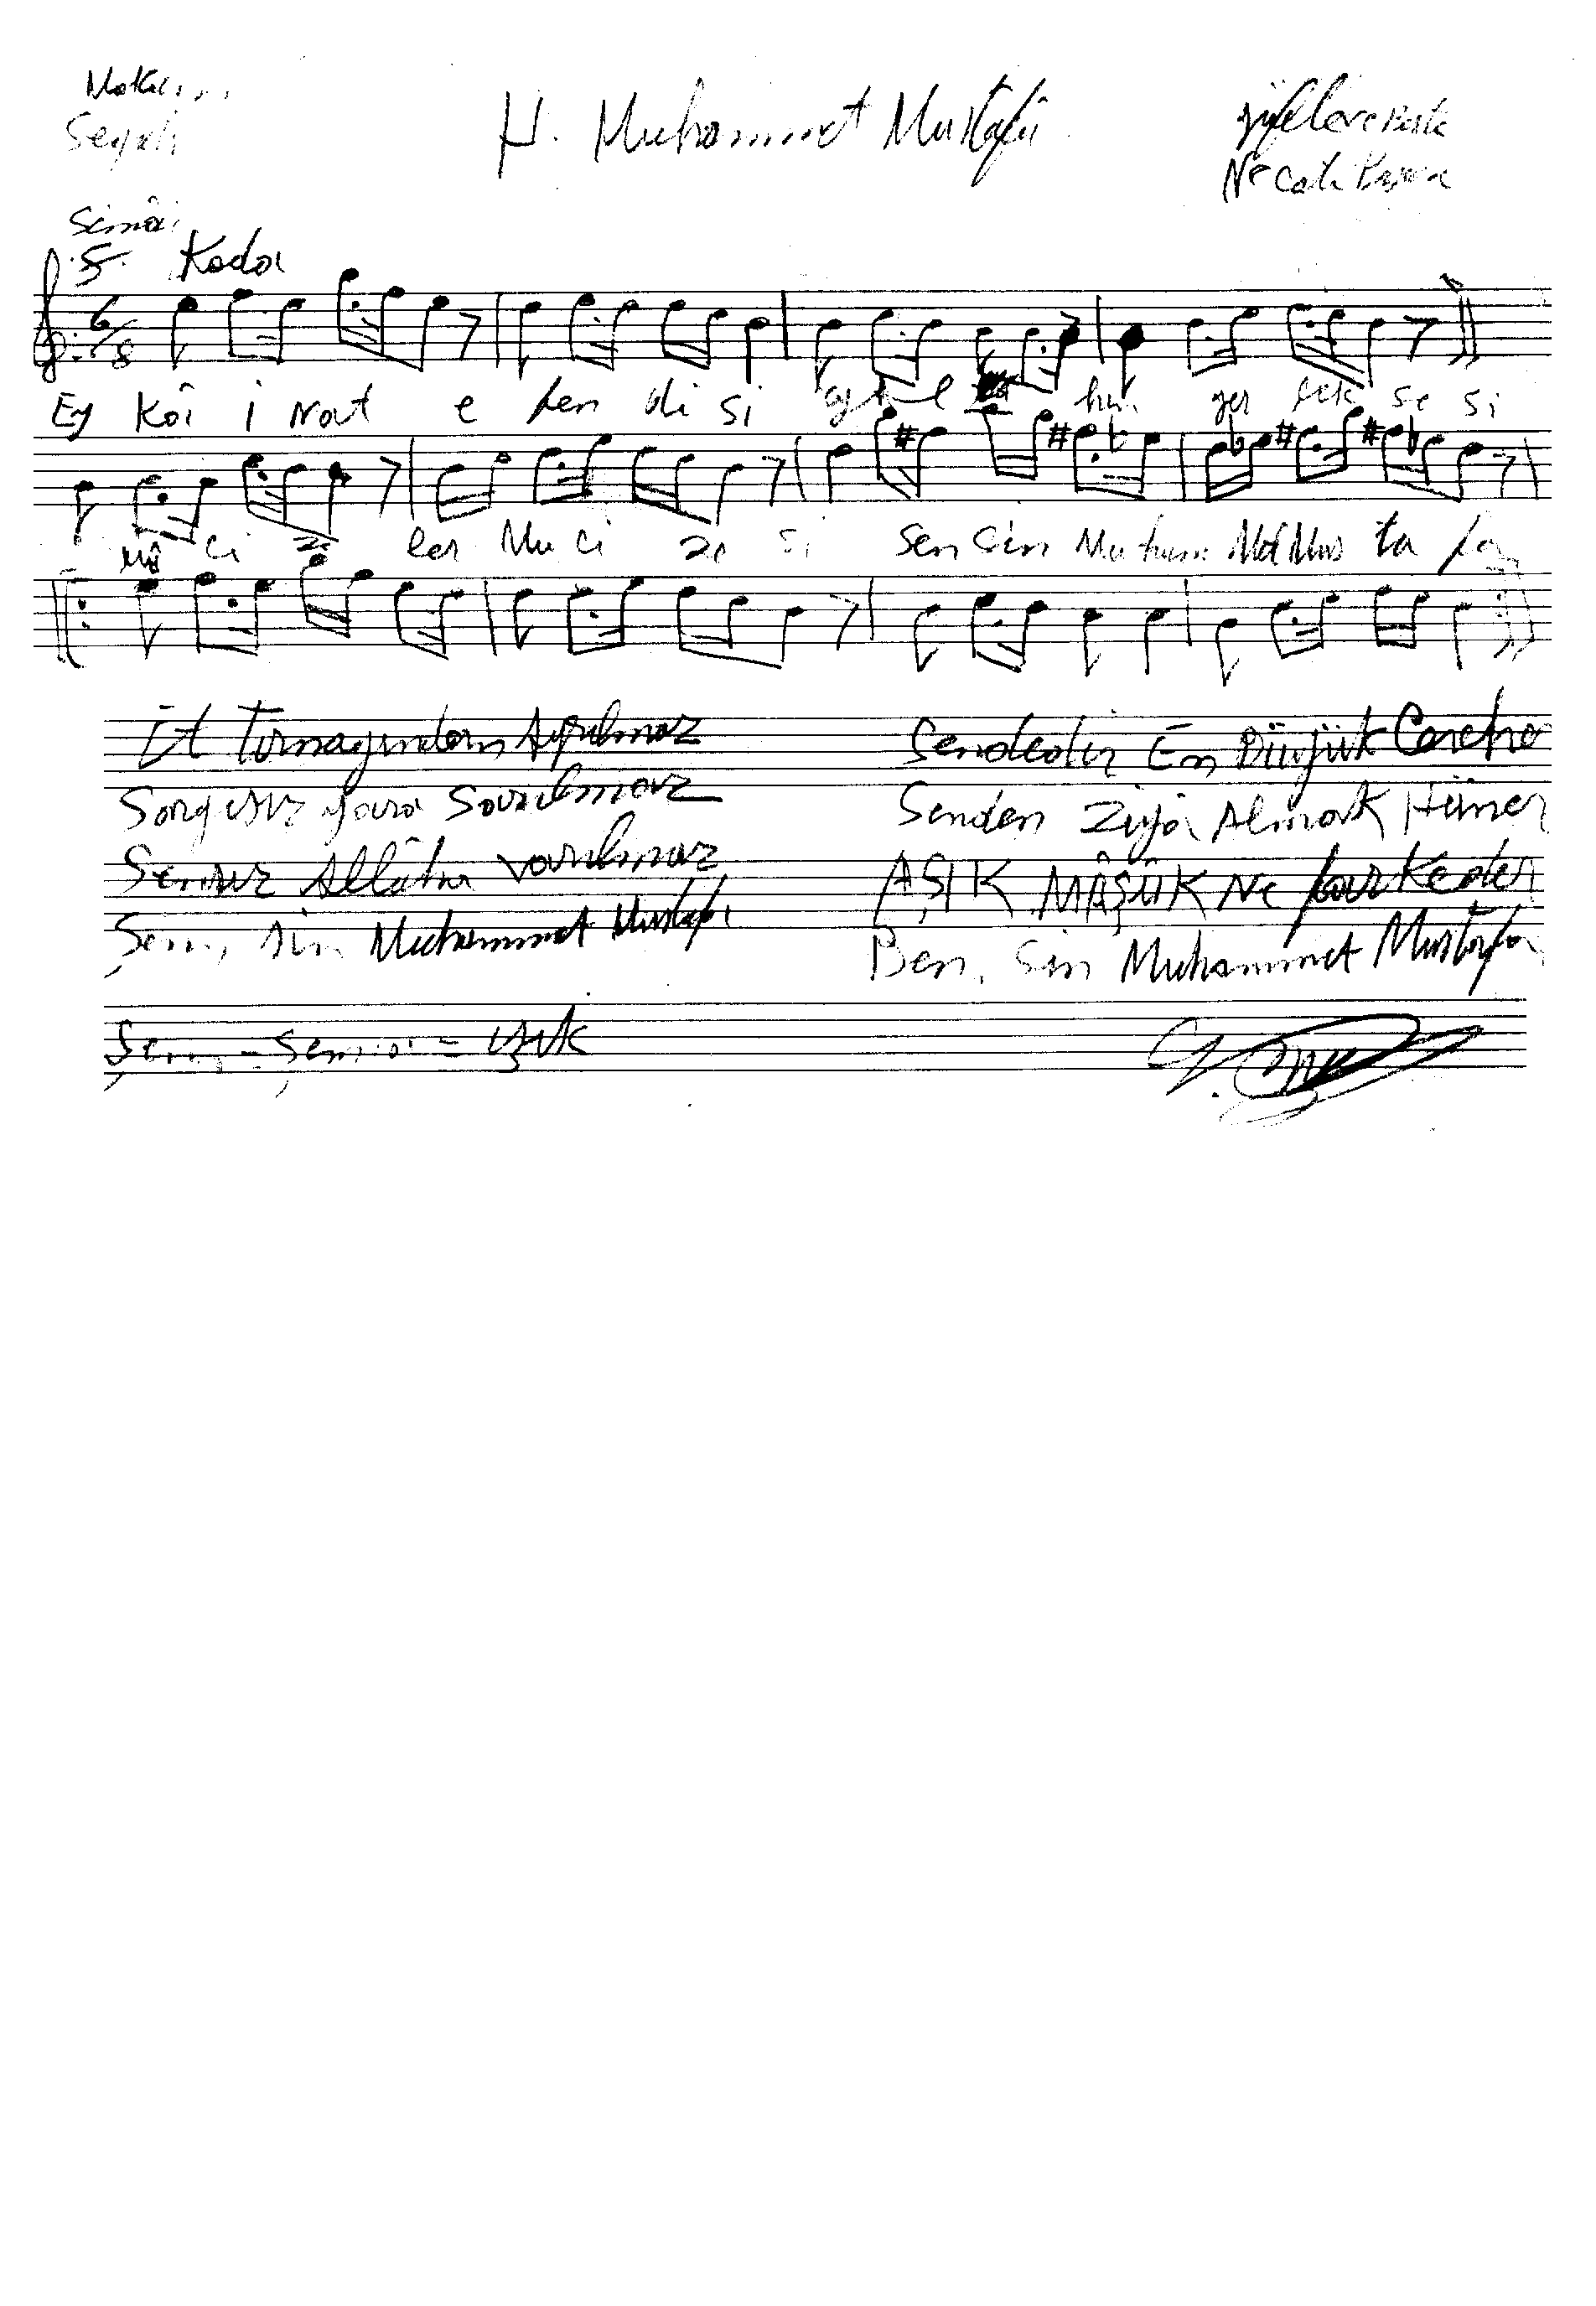 Makam
Segah
H. Muhammet Mustafa
Necati
Semâi
Koda
6/8
Ey Kâ i Nat e fen di si ger çek se si
Mû ci ze ler Mu ci ze si Sen sin Mu ham Met Mus ta fa
Et Tırnağından Ayrılmaz
Sargısız yara Sarılmaz
Sensiz Allâha varılmaz
Şem, sin Muhammet Mustafa
Sendedir En Büyük Cevher
Senden Ziya Almak Hüner
AŞIK MÂŞÛK Ne farkeder
Ben, Sin Muhammet Mustafa